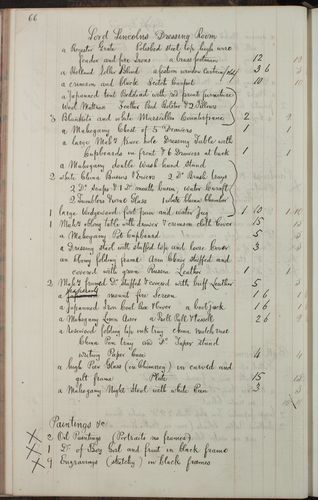 66
Lord Lincolns Dressing Room
a Register Grate Polished steel top high wire
fender and fire Irons a brass footman 12
a Holland Roller Blind a festoon window curtain (old) 3 6 3
a crimson and black Scotch Carpet 10 10
a Japanned tent Bedstead with red print furniture
Wool Mattress Feather Bed Bolster & 2 Pillows
3 Blankets and white Marseilles Counterpane 2
a Mahogany Chest of 5 Drawers 1 1
a large Mahy Knee hole Dressing Table with
Cupboards in front & 6 Drawers at back 1 1
a Mahogany double Wash hand Stand
2 white China Basins & Ewers 2 Do Brush Trays
2 Do Soaps & 1 Do mouth basin, water Caraft
2 Tumblers Some Glass 1 white China Chamber
1 large Wedgewood foot pan and water Jug 1 10 1 10
1 Mahy oblong table with drawer & crimson cloth Cover 15
a Mahogany Pot Cupboard 5 5
a Dressing stool with stuffed top and loose Cover 3 3
an Ebony folding frame Arm Chair stuffed and
covered with green Russia Leather 1 1
2 Mahy framed Do Stuffed & covered with buff Leather 5 5
a mount fire screen 1 6 1
a Japanned Iron Coal Box & Cover a boot jack 1 6 1
a Mahogany Linen Airer a Bell Pull & Tassell 2 6
a Rosewood folding top inktray china match case
China Pen tray and Do Taper stand
writing Paper case 4 4
a high Pier Glass (on Chimney) in carved and
gilt frame Plate 15 15
a Mahogany Night Stool with white Pan 3 3
Paintings &c
X 2 Oil Paintings (Portraits no frames)
X 1 Do of Boy Girl and fruit in black frame
X 9 Engravings (sketchy) in black frames